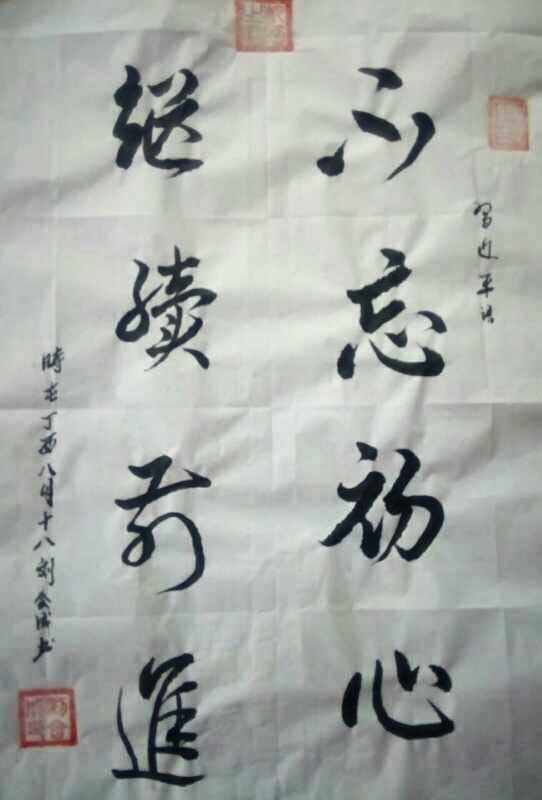 不忘初心
继續前進
習近平语
時在丁酉八月十八刘会